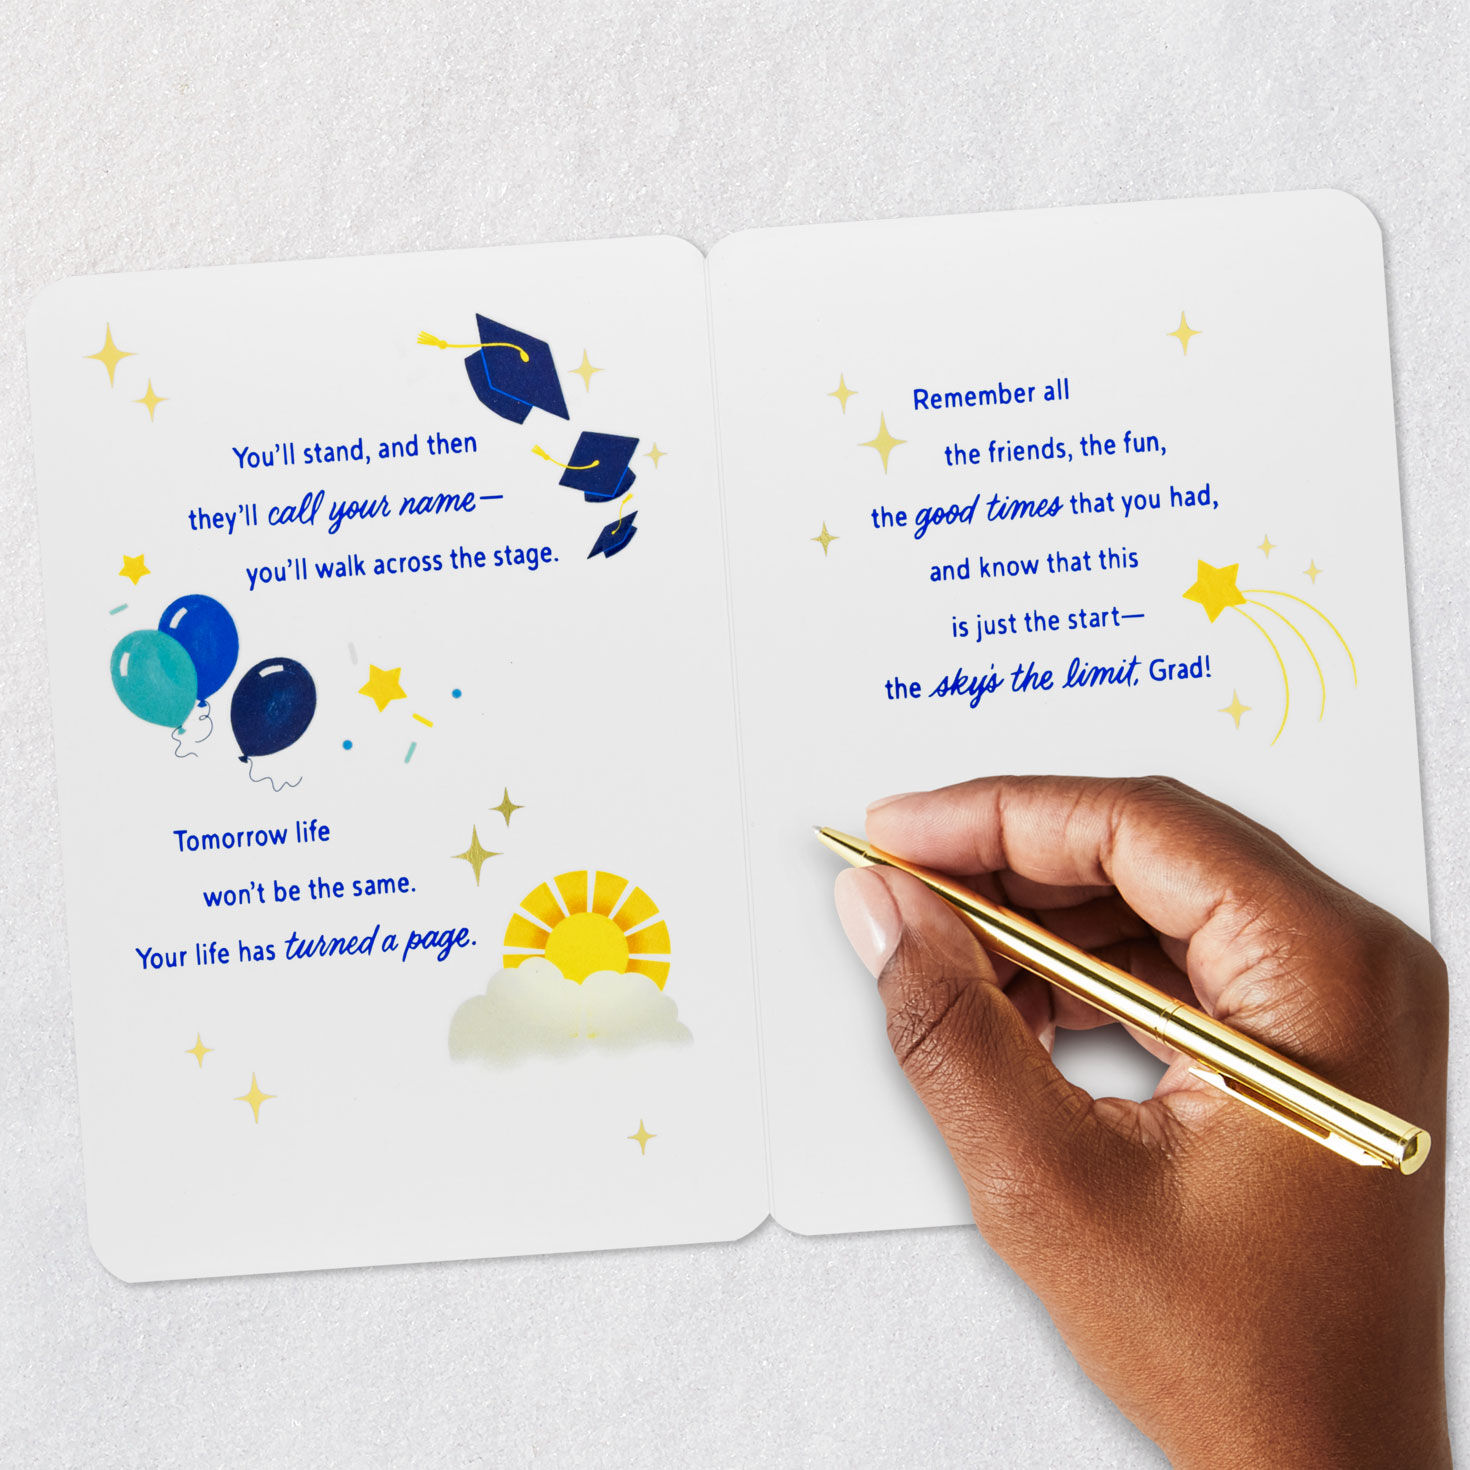 You'll stand, and then
they'll call your name—
you'll walk across the stage.
Tomorrow life
won't be the same.
Your life has turned a page.
Remember all
the friends, the fun,
the good times that you had,
and know that this
is just the start—
the sky's the limit, Grad!